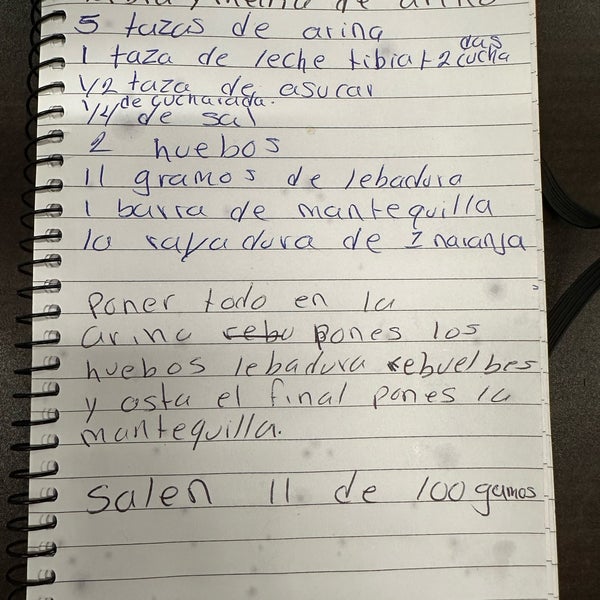 5 tazas de arina
1 taza de leche tibia + 2 cuchadas
1/2 taza de asucar
1/4 de cucharada. de sal
2 huebos
11 gramos de lebadura
1 barra de mantequilla
la rayadura de 1 naranja
poner todo en la
arina rebu pones los
huebos lebadura rebuelbes
y asta el final pones la
mantequilla.
Salen 11 de 100 gamos